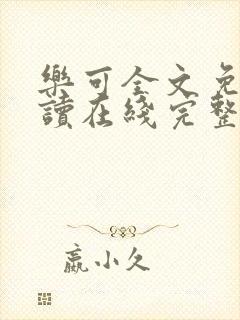 樂可全文免
讀在綫完整
嬴小久